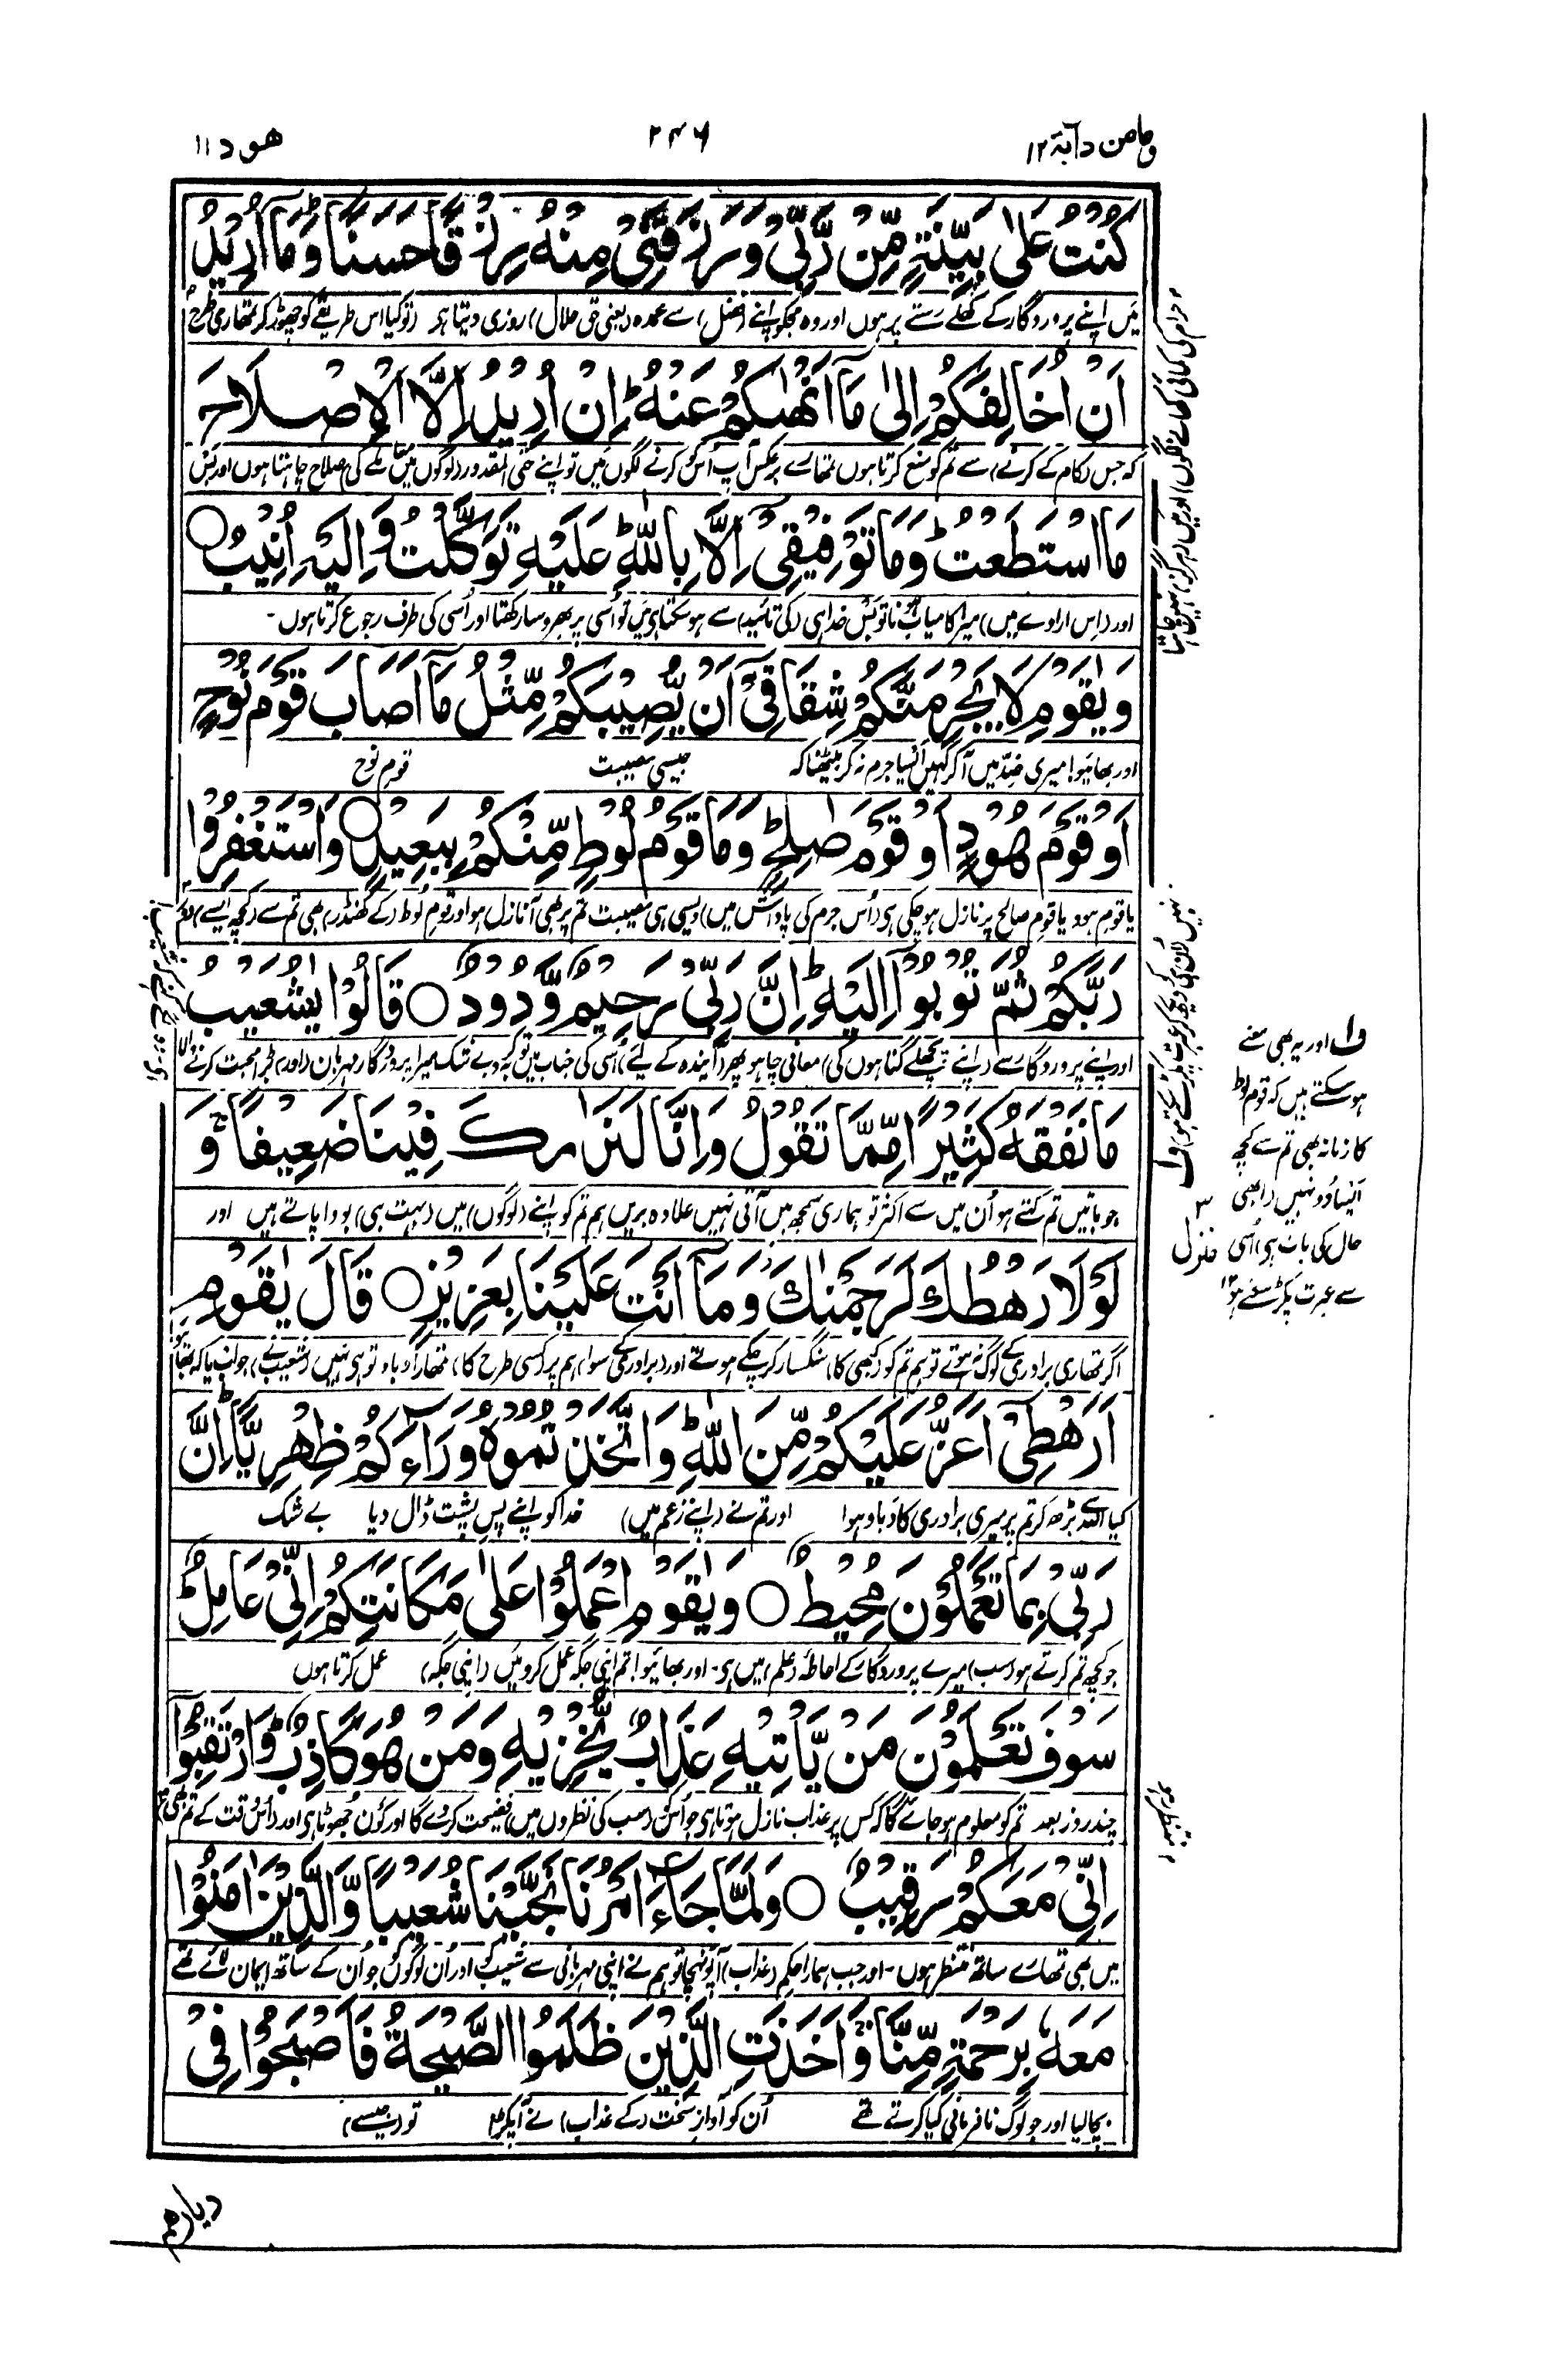 ومامن دآبة ۱۲
۳۴۶
هود ۱۱
كُنْتُ عَلٰى بَيِّنَةٍ مِّنْ رَّبِّيْ وَرَزَقَنِيْ مِنْهُ رِزْقًا حَسَنًا ؕ وَمَآ اُرِيْدُ
میں اپنے پروردگار کے کھلے رستے پر ہوں اور وہ مجکو اپنے (فضل) سے عمدہ (یعنی حق حلال) روزی دیتا ہو (تو کیا اس طریقے کو چھوڑ کر تمھاری طرح
حرام کی کمائی کھانے لگوں) اور میں (ہرگز) نہیں چاہتا
اَنْ اُخَالِفَكُمْ اِلٰى مَآ اَنْهٰىكُمْ عَنْهُ ؕ اِنْ اُرِيْدُ اِلَّا الْاِصْلَاحَ
کہ جس (کام کے کرنے) سے تم کو منع کرتا ہوں تمھارے برعکس آپ اُس کو کرنے لگوں میں تو اپنے حتی المقدور (لوگوں میں) اصلاح چاہتا ہوں اور بس
مَا اسْتَطَعْتُ ؕ وَمَا تَوْفِيْقِيْٓ اِلَّا بِاللّٰهِ ؕ عَلَيْهِ تَوَكَّلْتُ وَاِلَيْهِ اُنِيْبُ ○
اور (اِس ارادے میں) میرا کامیاب ہونا تو بس خدا ہی (کی تائید) سے ہو سکتا ہی میں تو اُسی پر بھروسا رکھتا اور اُسی کی طرف رجوع کرتا ہوں۔
وَيٰقَوْمِ لَا يَجْرِمَنَّكُمْ شِقَاقِيْٓ اَنْ يُّصِيْبَكُمْ مِّثْلُ مَآ اَصَابَ قَوْمَ نُوْحٍ
اور بھائیو! میری ضِد میں آکر کہیں ایسا جرم نہ کر بیٹھنا کہ جیسی مصیبت قوم نوح
اَوْ قَوْمَ هُوْدٍ اَوْ قَوْمَ صٰلِحٍ ؕ وَمَا قَوْمُ لُوْطٍ مِّنْكُمْ بِبَعِيْدٍ ○ وَاسْتَغْفِرُوْا
یا قوم ہود یا قوم صالح پر نازل ہو چکی ہی (اُس جرم کی پاداش میں) ویسی ہی مصیبت تم پر بھی آنازل ہو اور قوم لُوط (کے کھنڈر) بھی تم سے (کچھ ایسے) دُور
نہیں (اُن ہی کو دیکھ کر عبرت پکڑ سکتے ہو) ف۱
رَبَّكُمْ ثُمَّ تُوْبُوْٓا اِلَيْهِ ؕ اِنَّ رَبِّيْ رَحِيْمٌ وَّدُوْدٌ ○ قَالُوْا يٰشُعَيْبُ
اور اپنے پروردگار سے (اپنے پچھلے گناہوں کی) معافی چاہو پھر (آیندہ کے لیے) اُسی کی جناب میں توبہ کرو بے شک میرا پروردگار مہربان (اور) بڑا محبت کرنے والا
مَا نَفْقَهُ كَثِيْرًا مِّمَّا تَقُوْلُ وَاِنَّا لَنَرٰىكَ فِيْنَا ضَعِيْفًا ۚ وَ
جو باتیں تم کہتے ہو اُن میں سے اکثر تو ہماری سمجھ میں آتی نہیں علاوہ بریں ہم تم کو اپنے (لوگوں) میں (بہت ہی) بودا پاتے ہیں اور
لَوْلَا رَهْطُكَ لَرَجَمْنٰكَ ؗ وَمَآ اَنْتَ عَلَيْنَا بِعَزِيْزٍ ○ قَالَ يٰقَوْمِ
اگر تمھاری برادری کے لوگ نہ ہوتے تو ہم تم کو (کبھی کا) سنگسار کر چکے ہوتے اور (برادری کے سوا) ہم پر (کسی طرح کا) تمھارا دباؤ تو ہی نہیں (شعیب نے) جواب دیا کہ بھائیو!
اَرَهْطِيْٓ اَعَزُّ عَلَيْكُمْ مِّنَ اللّٰهِ ؕ وَاتَّخَذْتُمُوْهُ وَرَآءَكُمْ ظِهْرِيًّا ؕ اِنَّ
کیا اللہ سے بڑھ کر تم پر میری برادری کا دباؤ ہوا اور تم نے (اپنے زعم میں) خدا کو اپنے پس پشت ڈال دیا بے شک
رَبِّيْ بِمَا تَعْمَلُوْنَ مُحِيْطٌ ○ وَيٰقَوْمِ اعْمَلُوْا عَلٰى مَكَانَتِكُمْ اِنِّيْ عَامِلٌ ؕ
جو کچھ تم کرتے ہو (سب) میرے پروردگار کے احاطۂ (علم) میں ہی۔ اور بھائیو! تم اپنی جگہ عمل کرو میں (اپنی جگہ) عمل کرتا ہوں
سَوْفَ تَعْلَمُوْنَ مَنْ يَّاْتِيْهِ عَذَابٌ يُّخْزِيْهِ وَمَنْ هُوَ كَاذِبٌ ؕ وَارْتَقِبُوْٓا
چند روز بعد تم کو معلوم ہو جائے گا کہ کس پر عذاب نازل ہوتا ہی جو اُس کو (سب کی نظروں میں) فضیحت کر دے گا اور کون جھوٹا ہی اور (اُس وقت کے) تم بھی
اِنِّيْ مَعَكُمْ رَقِيْبٌ ○ وَلَمَّا جَآءَ اَمْرُنَا نَجَّيْنَا شُعَيْبًا وَّالَّذِيْنَ اٰمَنُوْا
میں بھی تمھارے ساتھ منتظر ہوں۔ اور جب ہمارا حکم (عذاب) آپہنچا تو ہم نے اپنی مہربانی سے شعیب کو اور اُن لوگوں کو جو اُن کے ساتھ ایمان لائے تھے
مَعَهٗ بِرَحْمَةٍ مِّنَّا ۚ وَاَخَذَتِ الَّذِيْنَ ظَلَمُوا الصَّيْحَةُ فَاَصْبَحُوْا فِيْ
بچا لیا اور جو لوگ نافرمانی کیا کرتے تھے اُن کو آوازِ سخت (کے عذاب) نے آپکڑا تو
ف۱ اور یہ بھی معنے
ہو سکتے ہیں کہ قوم لوط
کا زمانہ بھی تم سے کچھ
ایسا دُور نہیں (ابھی
حال کی بات ہی) اُسی
سے عبرت پکڑ سکتے ہو ۱۲
منزل ۳
ديارهم